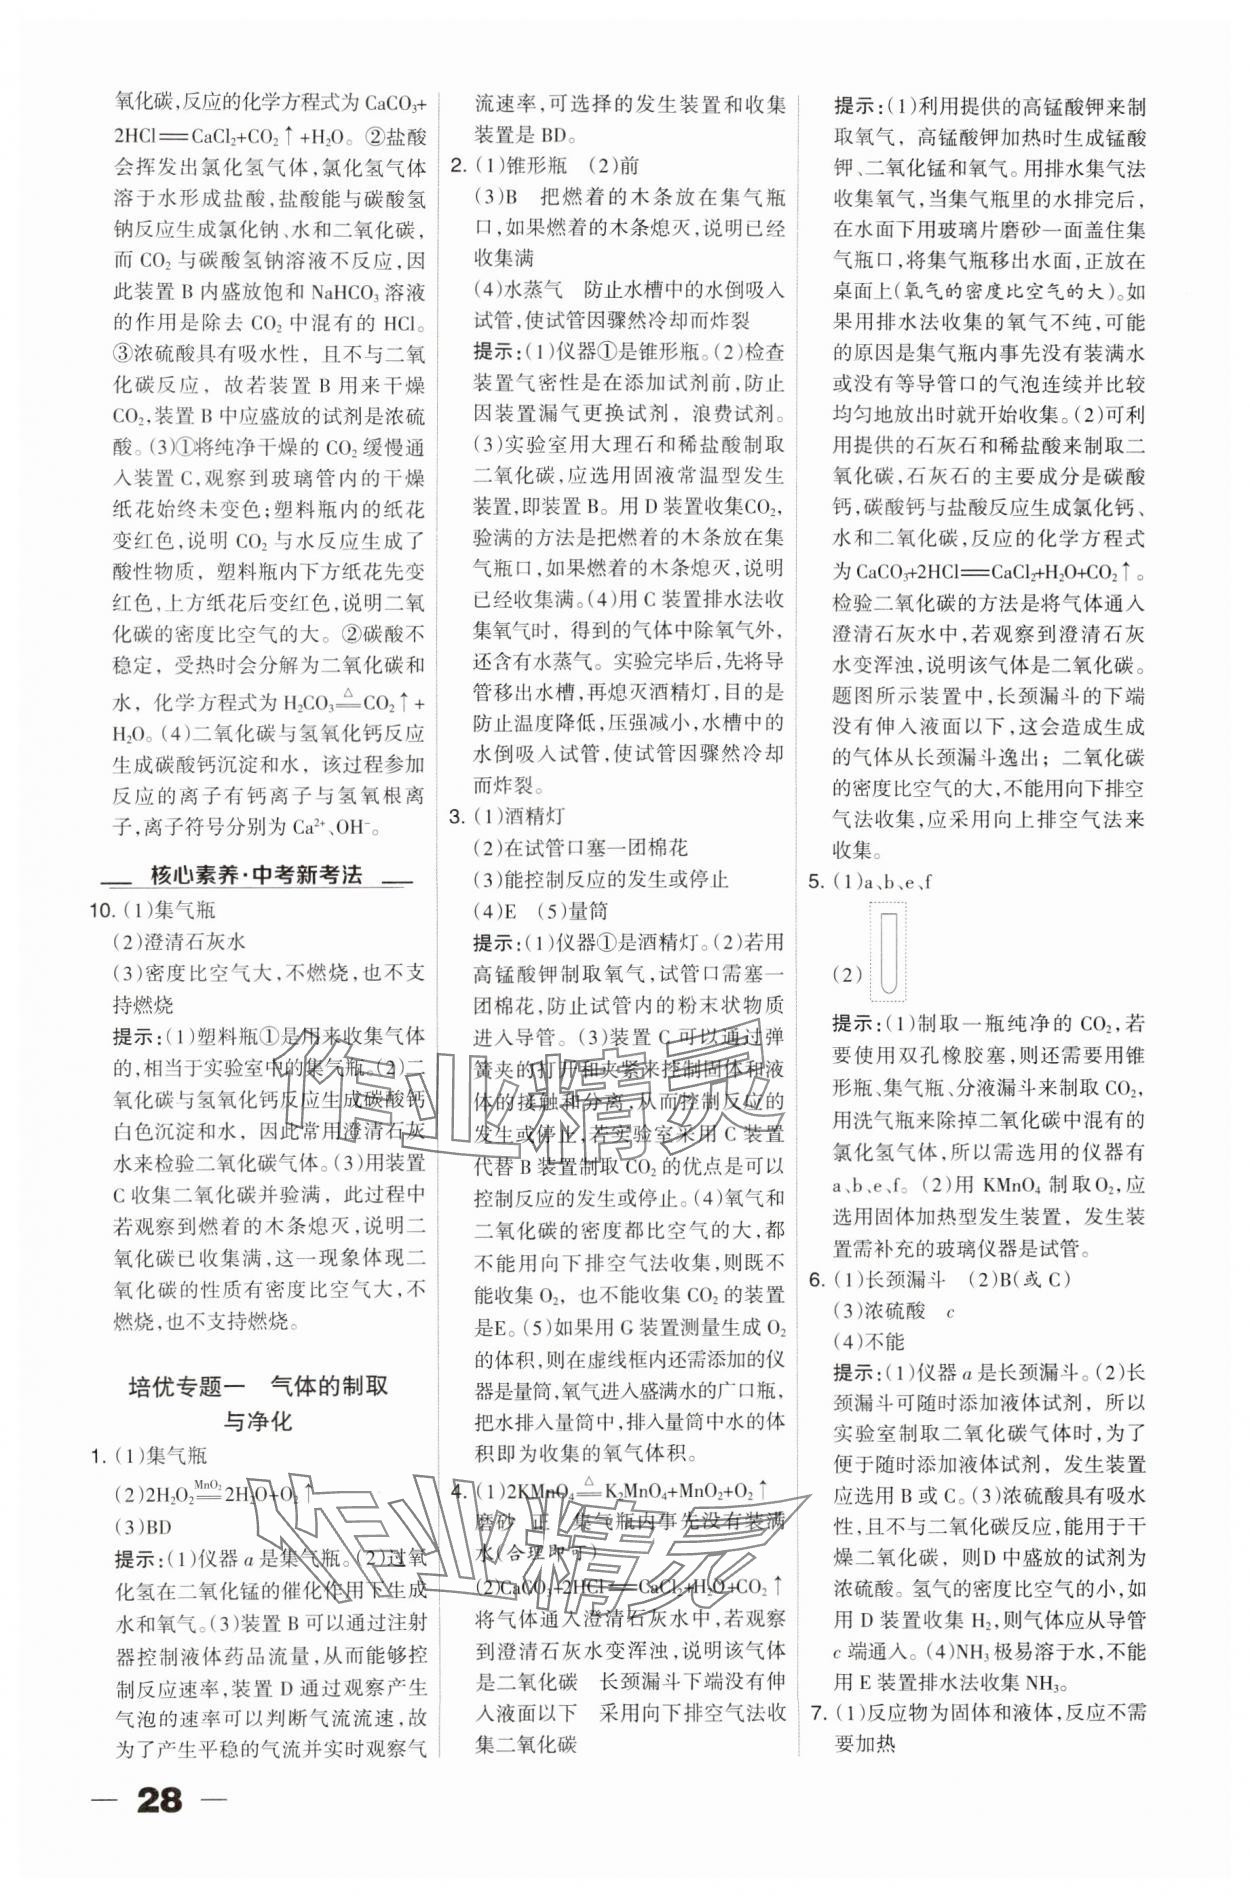 氧化碳,反应的化学方程式为 CaCO₃+
2HCl══CaCl₂+CO₂↑+H₂O。②盐酸
会挥发出氯化氢气体,氯化氢气体
溶于水形成盐酸,盐酸能与碳酸氢
钠反应生成氯化钠、水和二氧化碳,
而 CO₂ 与碳酸氢钠溶液不反应,因
此装置 B 内盛放饱和 NaHCO₃ 溶液
的作用是除去 CO₂ 中混有的 HCl。
③浓硫酸具有吸水性，且不与二氧
化碳反应，故若装置 B 用来干燥
CO₂,装置 B 中应盛放的试剂是浓硫
酸。(3)①将纯净干燥的 CO₂ 缓慢通
入装置 C,观察到玻璃管内的干燥
纸花始终未变色;塑料瓶内的纸花
变红色,说明 CO₂ 与水反应生成了
酸性物质，塑料瓶内下方纸花先变
红色,上方纸花后变红色,说明二氧
化碳的密度比空气的大。②碳酸不
稳定，受热时会分解为二氧化碳和
水，化学方程式为 H₂CO₃≜CO₂↑+
H₂O。(4)二氧化碳与氢氧化钙反应
生成碳酸钙沉淀和水，该过程参加
反应的离子有钙离子与氢氧根离
子,离子符号分别为 Ca²⁺、OH⁻。
核心素养·中考新考法
10. (1)集气瓶
(2)澄清石灰水
(3)密度比空气大,不燃烧,也不支
持燃烧
提示:(1)塑料瓶①是用来收集气体
的,相当于实验室中的集气瓶。(2)二
氧化碳与氢氧化钙反应生成碳酸钙
白色沉淀和水，因此常用澄清石灰
水来检验二氧化碳气体。(3)用装置
C 收集二氧化碳并验满，此过程中
若观察到燃着的木条熄灭，说明二
氧化碳已收集满,这一现象体现二
氧化碳的性质有密度比空气大,不
燃烧,也不支持燃烧。
培优专题一　气体的制取
与净化
1. (1)集气瓶
(2)2H₂O₂ ══(MnO₂) 2H₂O+O₂↑
(3)BD
提示:(1)仪器 a 是集气瓶。(2)过氧
化氢在二氧化锰的催化作用下生成
水和氧气。(3)装置 B 可以通过注射
器控制液体药品流量,从而能够控
制反应速率,装置 D 通过观察产生
气泡的速率可以判断气流流速,故
为了产生平稳的气流并实时观察气
流速率,可选择的发生装置和收集
装置是 BD。
2. (1)锥形瓶　(2)前
(3)B　把燃着的木条放在集气瓶
口,如果燃着的木条熄灭,说明已经
收集满
(4)水蒸气　防止水槽中的水倒吸入
试管,使试管因骤然冷却而炸裂
提示:(1)仪器①是锥形瓶。(2)检查
装置气密性是在添加试剂前,防止
因装置漏气更换试剂，浪费试剂。
(3)实验室用大理石和稀盐酸制取
二氧化碳,应选用固液常温型发生
装置,即装置 B。用 D 装置收集CO₂,
验满的方法是把燃着的木条放在集
气瓶口,如果燃着的木条熄灭,说明
已经收集满。(4)用 C 装置排水法收
集氧气时，得到的气体中除氧气外,
还含有水蒸气。实验完毕后,先将导
管移出水槽,再熄灭酒精灯,目的是
防止温度降低,压强减小,水槽中的
水倒吸入试管,使试管因骤然冷却
而炸裂。
3. (1)酒精灯
(2)在试管口塞一团棉花
(3)能控制反应的发生或停止
(4)E　(5)量筒
提示:(1)仪器①是酒精灯。(2)若用
高锰酸钾制取氧气,试管口需塞一
团棉花,防止试管内的粉末状物质
进入导管。(3)装置 C 可以通过弹
簧夹的打开和夹紧来控制固体和液
体的接触和分离,从而控制反应的
发生或停止,若实验室采用 C 装置
代替 B 装置制取 CO₂ 的优点是可以
控制反应的发生或停止。(4)氧气和
二氧化碳的密度都比空气的大,都
不能用向下排空气法收集,则既不
能收集 O₂，也不能收集 CO₂ 的装置
是E。(5)如果用 G 装置测量生成 O₂
的体积,则在虚线框内还需添加的仪
器是量筒,氧气进入盛满水的广口瓶,
把水排入量筒中,排入量筒中水的体
积即为收集的氧气体积。
4. (1)2KMnO₄≜K₂MnO₄+MnO₂+O₂↑
磨砂　正　集气瓶内事先没有装满
水(合理即可)
(2)CaCO₃+2HCl══CaCl₂+H₂O+CO₂↑
将气体通入澄清石灰水中,若观察
到澄清石灰水变浑浊,说明该气体
是二氧化碳　长颈漏斗下端没有伸
入液面以下　采用向下排空气法收
集二氧化碳
提示:(1)利用提供的高锰酸钾来制
取氧气，高锰酸钾加热时生成锰酸
钾、二氧化锰和氧气。用排水集气法
收集氧气,当集气瓶里的水排完后,
在水面下用玻璃片磨砂一面盖住集
气瓶口,将集气瓶移出水面,正放在
桌面上(氧气的密度比空气的大)。如
果用排水法收集的氧气不纯,可能
的原因是集气瓶内事先没有装满水
或没有等导管口的气泡连续并比较
均匀地放出时就开始收集。(2)可利
用提供的石灰石和稀盐酸来制取二
氧化碳,石灰石的主要成分是碳酸
钙,碳酸钙与盐酸反应生成氯化钙、
水和二氧化碳,反应的化学方程式
为 CaCO₃+2HCl══CaCl₂+H₂O+CO₂↑。
检验二氧化碳的方法是将气体通入
澄清石灰水中,若观察到澄清石灰
水变浑浊,说明该气体是二氧化碳。
题图所示装置中,长颈漏斗的下端
没有伸入液面以下,这会造成生成
的气体从长颈漏斗逸出；二氧化碳
的密度比空气的大,不能用向下排空
气法收集,应采用向上排空气法来
收集。
5. (1)a、b、e、f
(2)
提示:(1)制取一瓶纯净的 CO₂,若
要使用双孔橡胶塞,则还需要用锥
形瓶、集气瓶、分液漏斗来制取 CO₂,
用洗气瓶来除掉二氧化碳中混有的
氯化氢气体,所以需选用的仪器有
a、b、e、f。(2)用 KMnO₄ 制取O₂,应
选用固体加热型发生装置，发生装
置需补充的玻璃仪器是试管。
6. (1)长颈漏斗　(2)B(或 C)
(3)浓硫酸　c
(4)不能
提示:(1)仪器 a 是长颈漏斗。(2)长
颈漏斗可随时添加液体试剂，所以
实验室制取二氧化碳气体时,为了
便于随时添加液体试剂，发生装置
应选用 B 或 C。(3)浓硫酸具有吸水
性,且不与二氧化碳反应,能用于干
燥二氧化碳，则D 中盛放的试剂为
浓硫酸。氢气的密度比空气的小,如
用 D 装置收集 H₂,则气体应从导管
c 端通入。(4)NH₃ 极易溶于水,不能
用 E 装置排水法收集 NH₃。
7. (1)反应物为固体和液体,反应不需
要加热
28
作业精灵
作业精灵